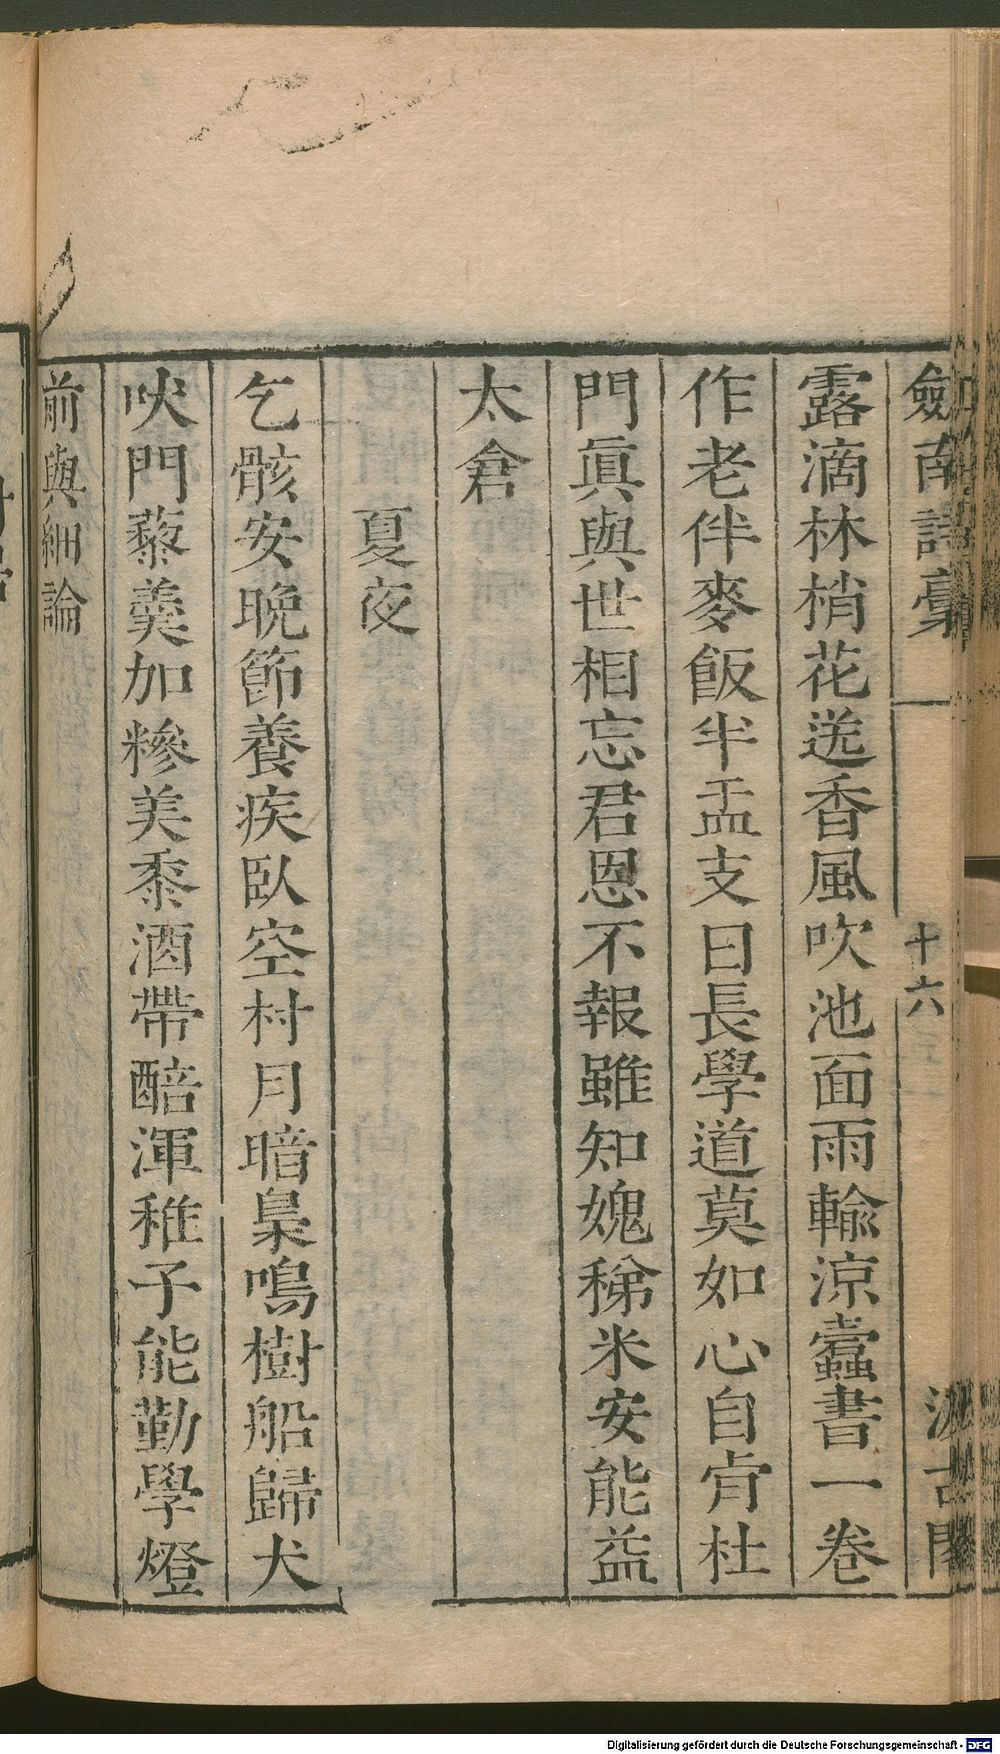 劒南詩稾 十六 汲古閣
露滴林梢花送香風吹池面雨輸涼蠧書一卷
作老伴麥飯半盂支日長學道莫如心自肯杜
門眞與世相忘君恩不報雖知媿稊米安能益
太倉
夏夜
乞骸安晩節養疾臥空村月暗梟鳴樹船歸犬
吠門藜羹加糝美黍酒帶醅渾稚子能勤學燈
前與細論
Digitalisierung gefördert durch die Deutsche Forschungsgemeinschaft - DFG